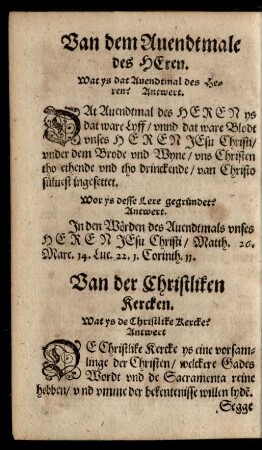 Van dem Auendtmale
des HEren.
Wat ys dat Auendtmal des He-
ren? Antwert.
DAt Auendtmal des HEREN ys
dat ware Lyff / vnnd dat ware Blodt
vnses HEREN JEsu Christi /
vnder dem Brode vnd Wyne / vns Christen
tho ethende vnd tho drinckende / van Christo
süluest ingesettet.
Wor ys desse Lere gegründet?
Antwert.
In den Wörden des Auendtmals vnses
HEREN JEsu Christi / Matth. 26.
Marc. 14. Luc. 22. 1. Corinth. 11.
Van der Christliken
Kercken.
Wat ys de Christlike Kercke?
Antwert
DE Christlike Kercke ys eine versam-
linge der Christen / welckere Gades
Wordt vnd de Sacramenta reine
hebben / vnd vmme der bekentenisse willen lydē.
Segge